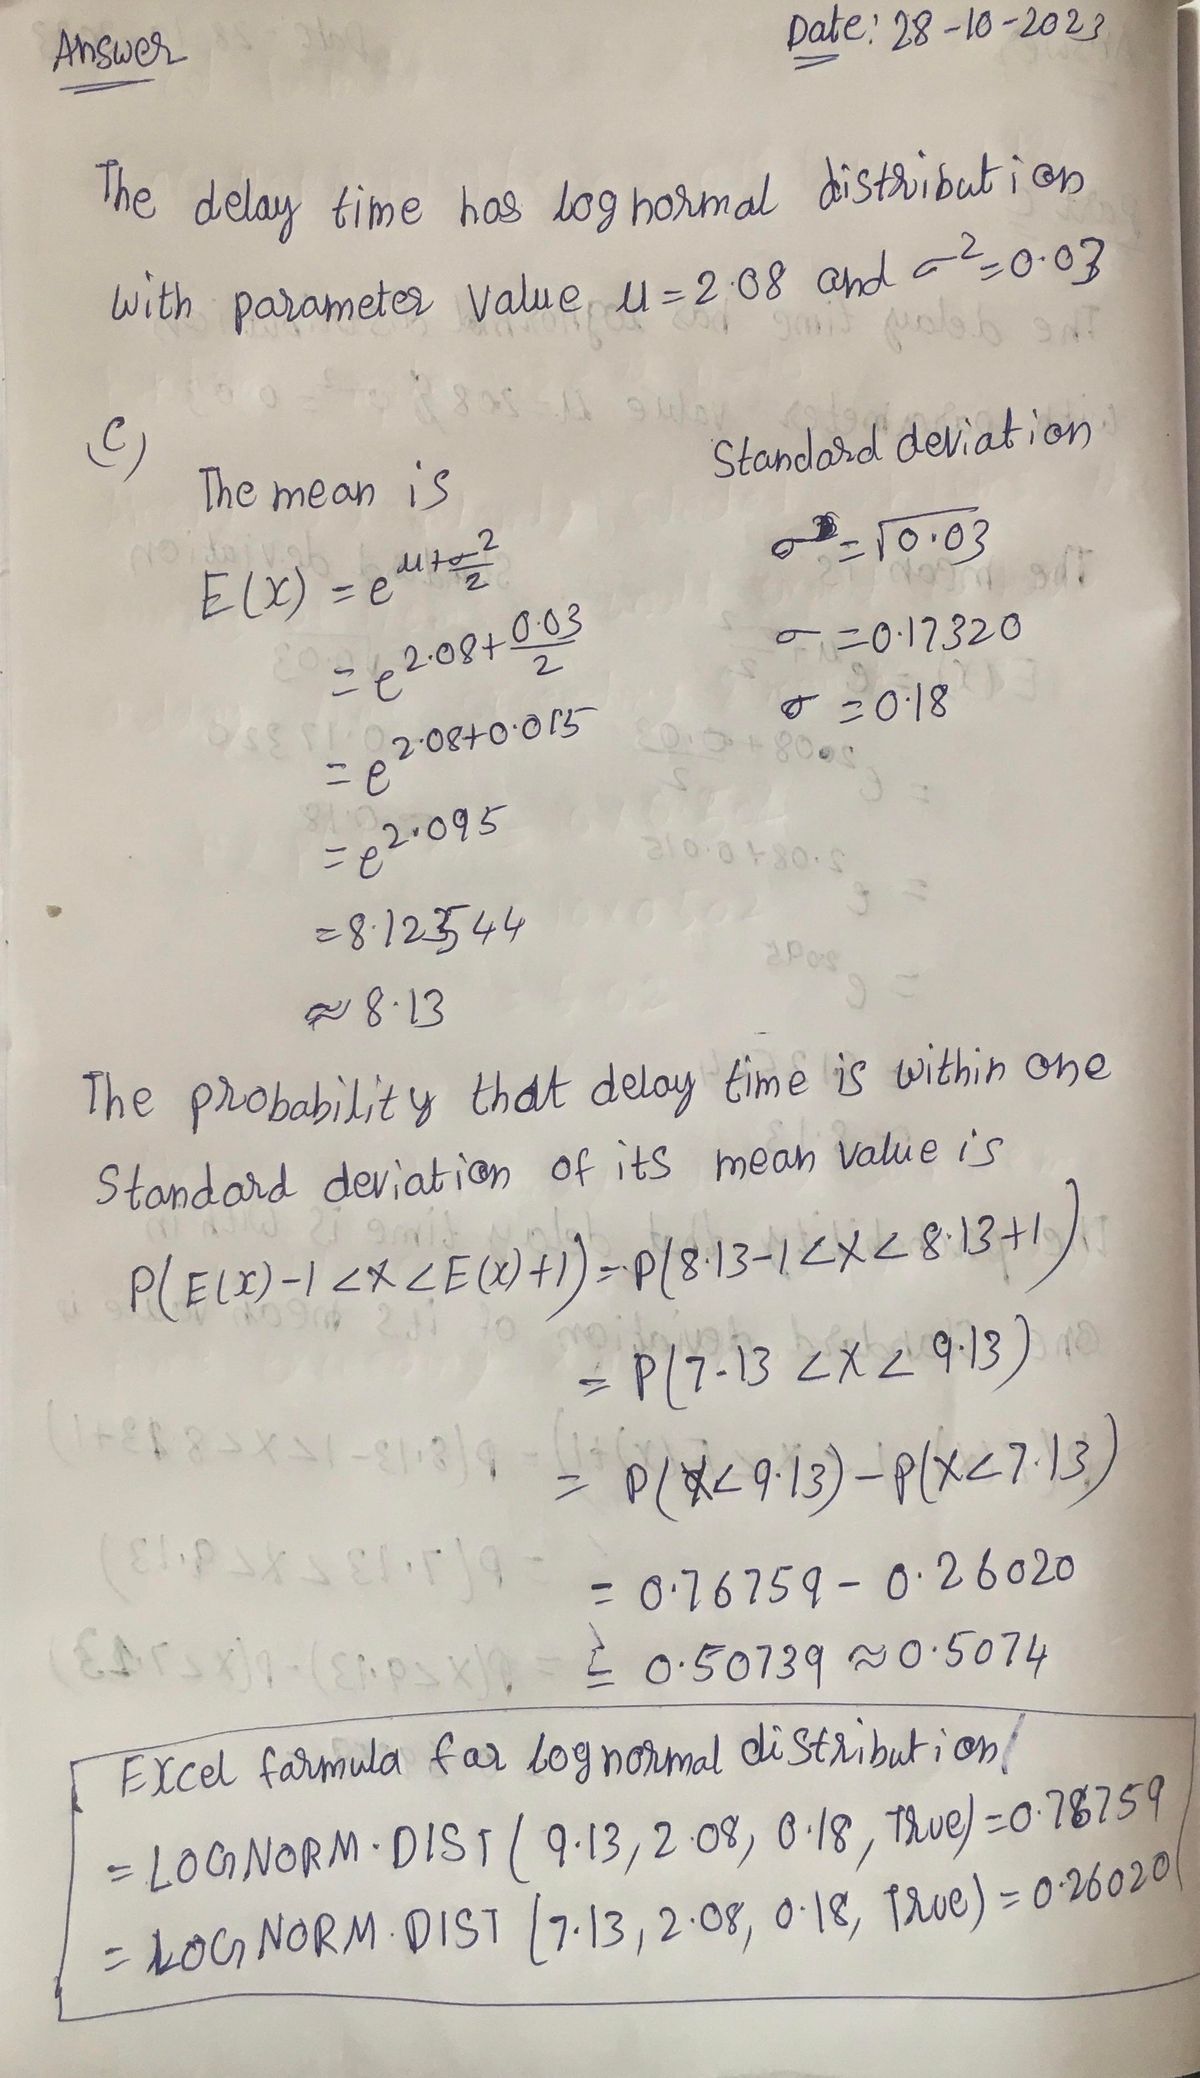 Answer
Date: 28-10-2023
The delay time has lognormal distribution
with parameter value μ=2.08 and σ²=0.03
(C)
The mean is
E(x) = e^μ+σ²/2
= e^2.08+0.03/2
= e^2.08+0.015
= e^2.095
= 8.123544
≈ 8.13
Standard deviation
σ = √0.03
σ = 0.17320
σ = 0.18
The probability that delay time is within one
Standard deviation of its mean value is
P(E(x)-1 <X <E(x)+1) = P(8.13-1 <X < 8.13+1)
= P(7.13 <X < 9.13)
= P(X<9.13) - P(X<7.13)
= 0.76759 - 0.26020
= 0.50739 ≈ 0.5074
Excel farmula far lognormal distribution
= LOGNORM.DIST ( 9.13, 2.08, 0.18, True) = 0.76759
= LOGNORM.DIST (7.13, 2.08, 0.18, True) = 0.26020